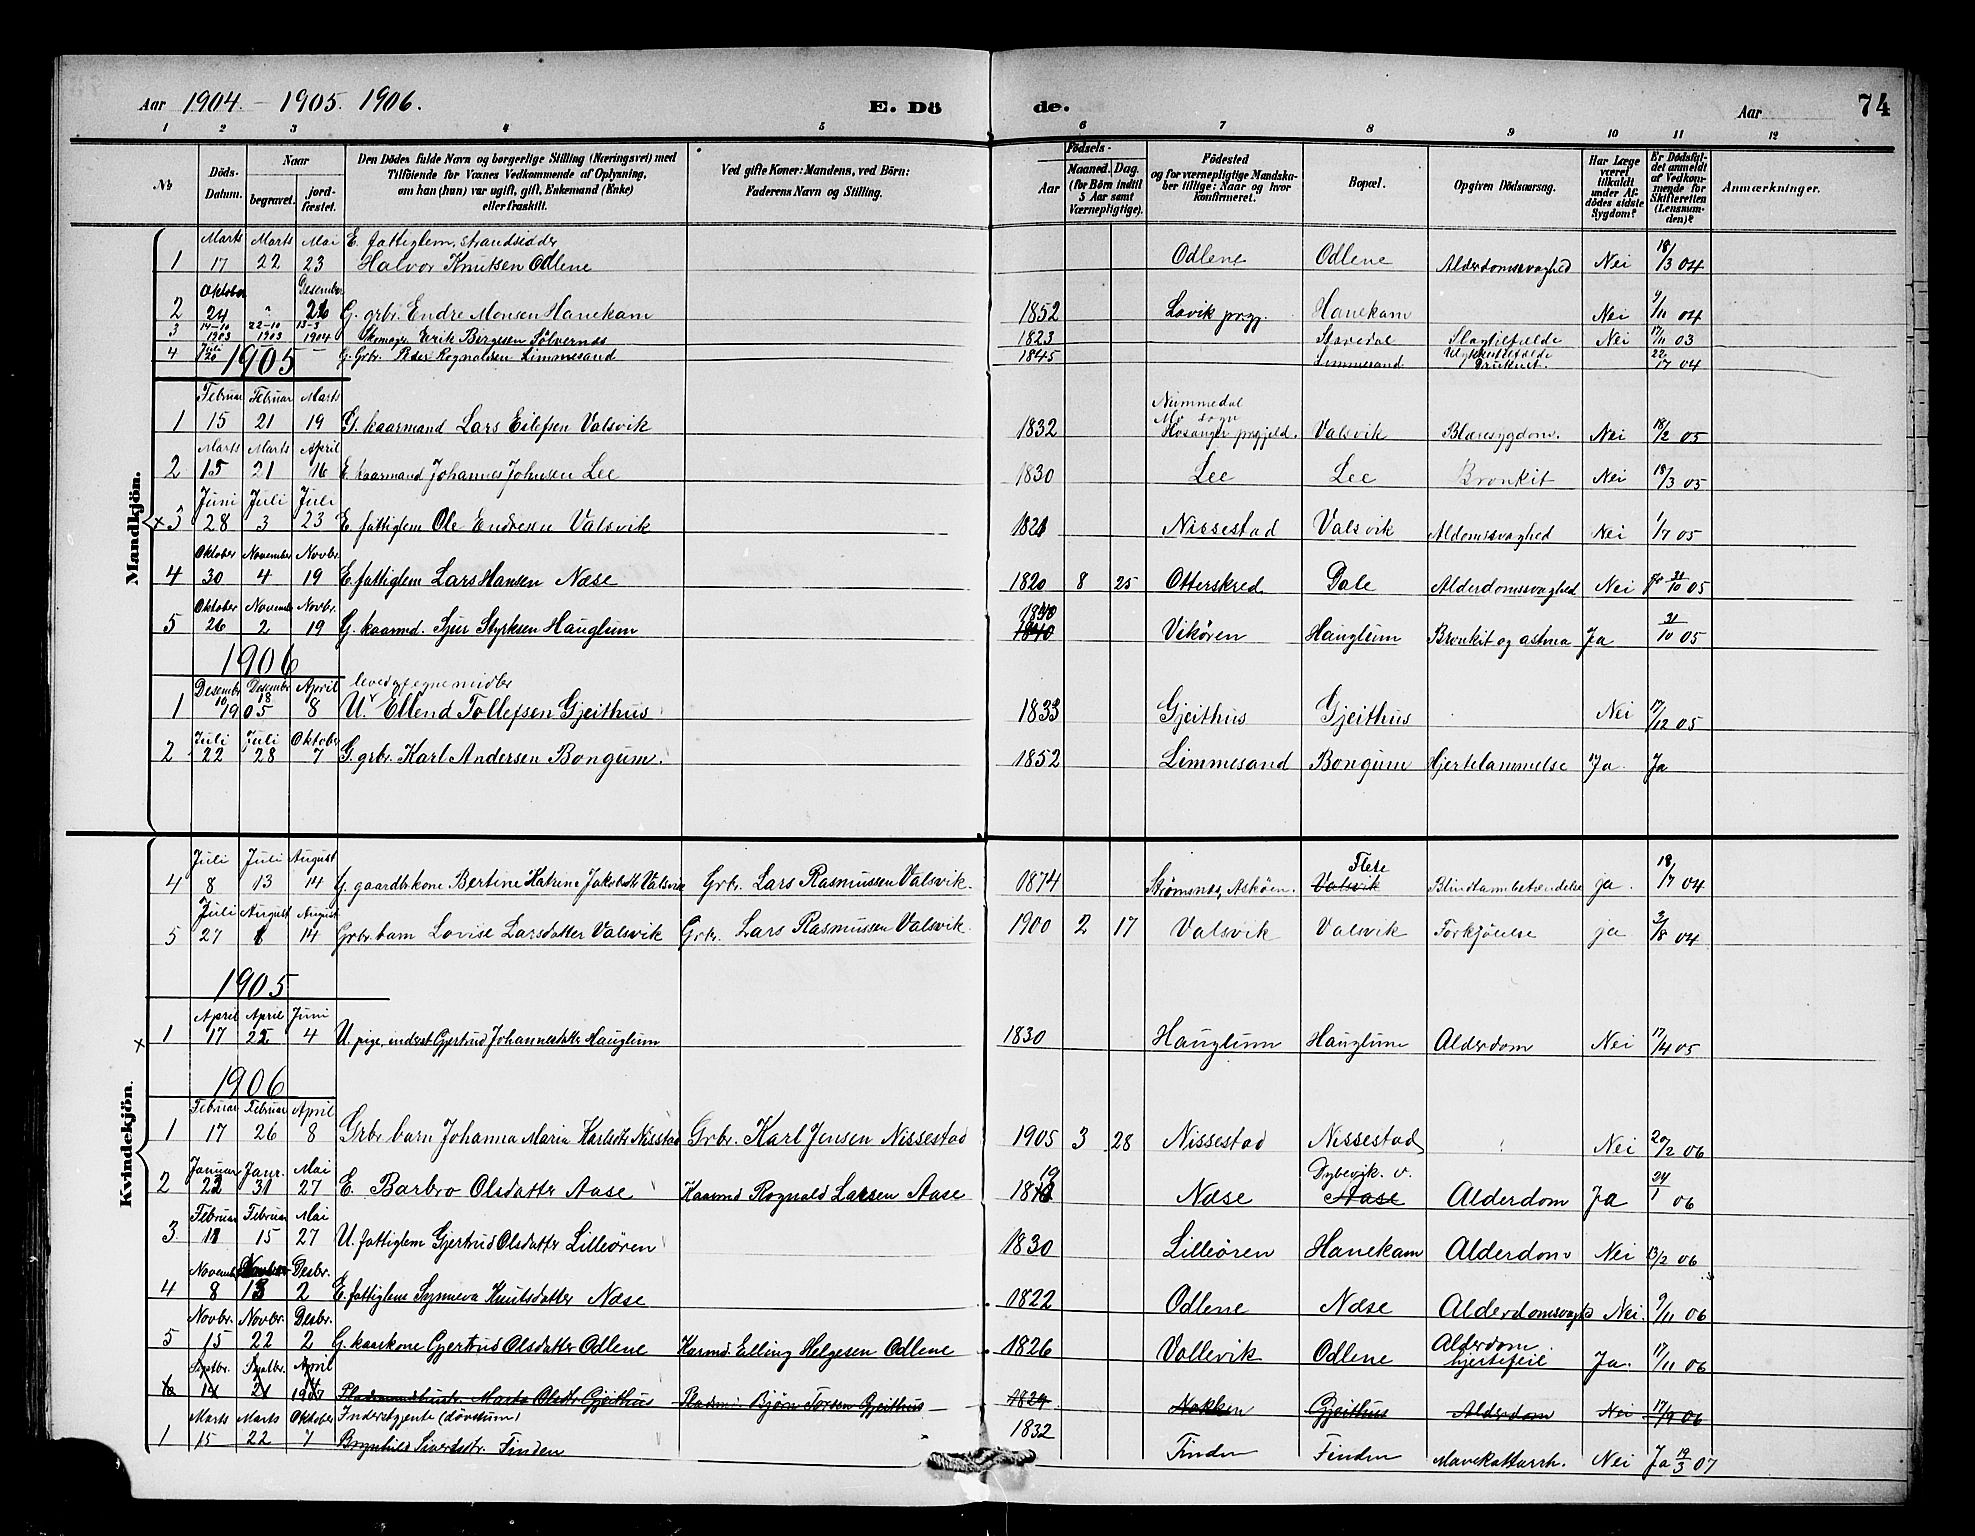 Aar 1904. – 1905. 1906. E. Dö de. Aar 74
1 2 3 4 5 6 7 8 9 10 11 12
No. Döds-Datum. Naar begravet. jordfæstet. Den Dödes fulde Navn og borgerlige Stilling (Næringsvei) med Tilföiende for Voxnes Vedkommende af Oplysning, om han (hun) var ugift, gift, Enkemand (Enke) eller fraskilt. Ved gifte Koner: Mandens, ved Börn: Faderens Navn og Stilling. Födsels- Aar Maaned. Dag. (for Börn indtil 5 Aar samt Værnepligtige). Födested og for værnepligtige Mandskaber tillige: Naar og hvor konfirmeret. Bopæl. Opgiven Dödsaarsag. Har Læge været tilkaldt under Afdödes sidste Sygdom? Er Dödsfaldet anmeldt af Vedkommende for Skifteretten (Lensmanden)? Anmærkninger.
Mandkjön.
Marts Marts Mai E. fattiglem, strandsidder
1 17 22 23 Halvor Knutsen Odlene Odlene Odlene Alderdomssvaghed Nei 18/3 04
Oktober Desember
2 24 " 26 G. grbr. Endre Monsen Hanekam 1852 Lavik prgj. Hanekam Nei 9/11 04
3 14-10 1903 22-10 1903 13-3 1904 Skomager Eerik Birgesen Sölvernes 1823 Stavedal Slagtilfælde Nei 17/11 03
4 Juli 20 G. Grbr. Peder Rognaldsen Limmesand 1845 Limmesand Ulykkestilfælde Druknet. 22/7 04
1905
Februar Februar Marts Nummedal Mo sogn
1 15 21 19 G. kaarmand Lars Eilefsen Valsvik 1832 Hosanger prgjeld. Valsvik Blæresygdom. Nei 18/2 05
Marts Marts April
2 15 21 16 E. kaarmand Johannes Johnsen Lee 1830 Lee Lee Bronkit Nei 18/3 05
Juni Juli Juli
x 3 28 3 23 E. fattiglem Ole Endresen Valsvik 1821 Nissestad Valsvik Aldomssvaghed Nei 1/7 05
Oktober November Novbr
4 30 4 19 E. fattiglem Lars Hansen Næse 1820 8 25 Otterskred Dale Alderdomssvaghed Nei 31/10 05
Oktober Novemb Novbr.
5 26 2 19 G. kaarmd. Sjur Styrksen Hauglum 1840 Vikören Hauglum Bronkit og astma Ja 31/10 05
1906
Desembr Desembr April leved af egne midler
1 10/1905 18 8 U. Ellend Tollefsen Gjeithus 1833 Gjeithus Gjeithus Nei 17/12 05
Juli Juli Oktober
2 22 28 7 G. grbr. Karl Andersen Bongum. 1852 Limmesand Bongum Hjertelammelse Ja Ja
Kvindekjön.
Juli Juli August Flese
4 8 13 14 G. gaardbr.kone Bertine Katrine Jakobdtr Valsvik Grbr. Lars Rasmussen Valsvik. 1874 Strømsnes, Askøen. Valsvik Blindtarmbetændelse ja. 18/7 04
Juli August August
5 27 1 14 Grbr. barn Lovise Larsdatter Valsvik Grbr. Lars Rasmussen Valsvik. 1900 2 17 Valsvik Valsvik Forkjölelse ja 3/8 04
1905
April April Juni
x 1 17 25 4 U. pige, inderst Gjertrud Johannesdatter Hauglum 1830 Hauglum Hauglum Alderdom Nei 17/4 05
1906
Februar Februar April
1 17 26 8 Grbr barn Johanna Maria Karlsdtr Nisstad Grbr. Karl Jensen Nissestad 1905 3 28 Nissestad Nissestad Nei 20/2 06
Januar Janr. Mai Dybevik. v.
2 22 31 27 E. Barbro Olsdatter Aase Kaarmd Rognald Larsen Aase 1819 Næse Aase Alderdom Ja 24/1 06
Februar Februar Mai
3 11 15 27 U. fattiglem Gjertrud Olsdatter Lilleören 1830 Lilleören Hanekam Alderdom Nei 13/2 06
Novemb Desbr.
4 8 13 2 E. fattiglem Synneva Knutsdatter Næse 1822 Odlene Næse Alderdomssvaghd Nei. 9/11 06
Novbr. Novbr. Desbr.
5 15 22 2 G. kaarkone Gjertrud Olsdatter Odlene Karmd. Elling Helgesen Odlene 1826 Vallevik Odlene Alderdom hjertefeil Ja. 17/11 06
Septbr. Septbr. April
6 14 21 1907 Pladsmandsenke Marta Olsdtr Gjeithus Pladsm. Bjørn Torsen Gjeithus 1829 Nokken Gjeithus Alderdom Nei 17/9 06
Marts Marts Oktober Inderstjente (dövstum)
1 15 22 7 Brynhild Siverdsdtr. Finden 1832 Finden Finden Mavekattarrh. Nei Ja 19/3 07